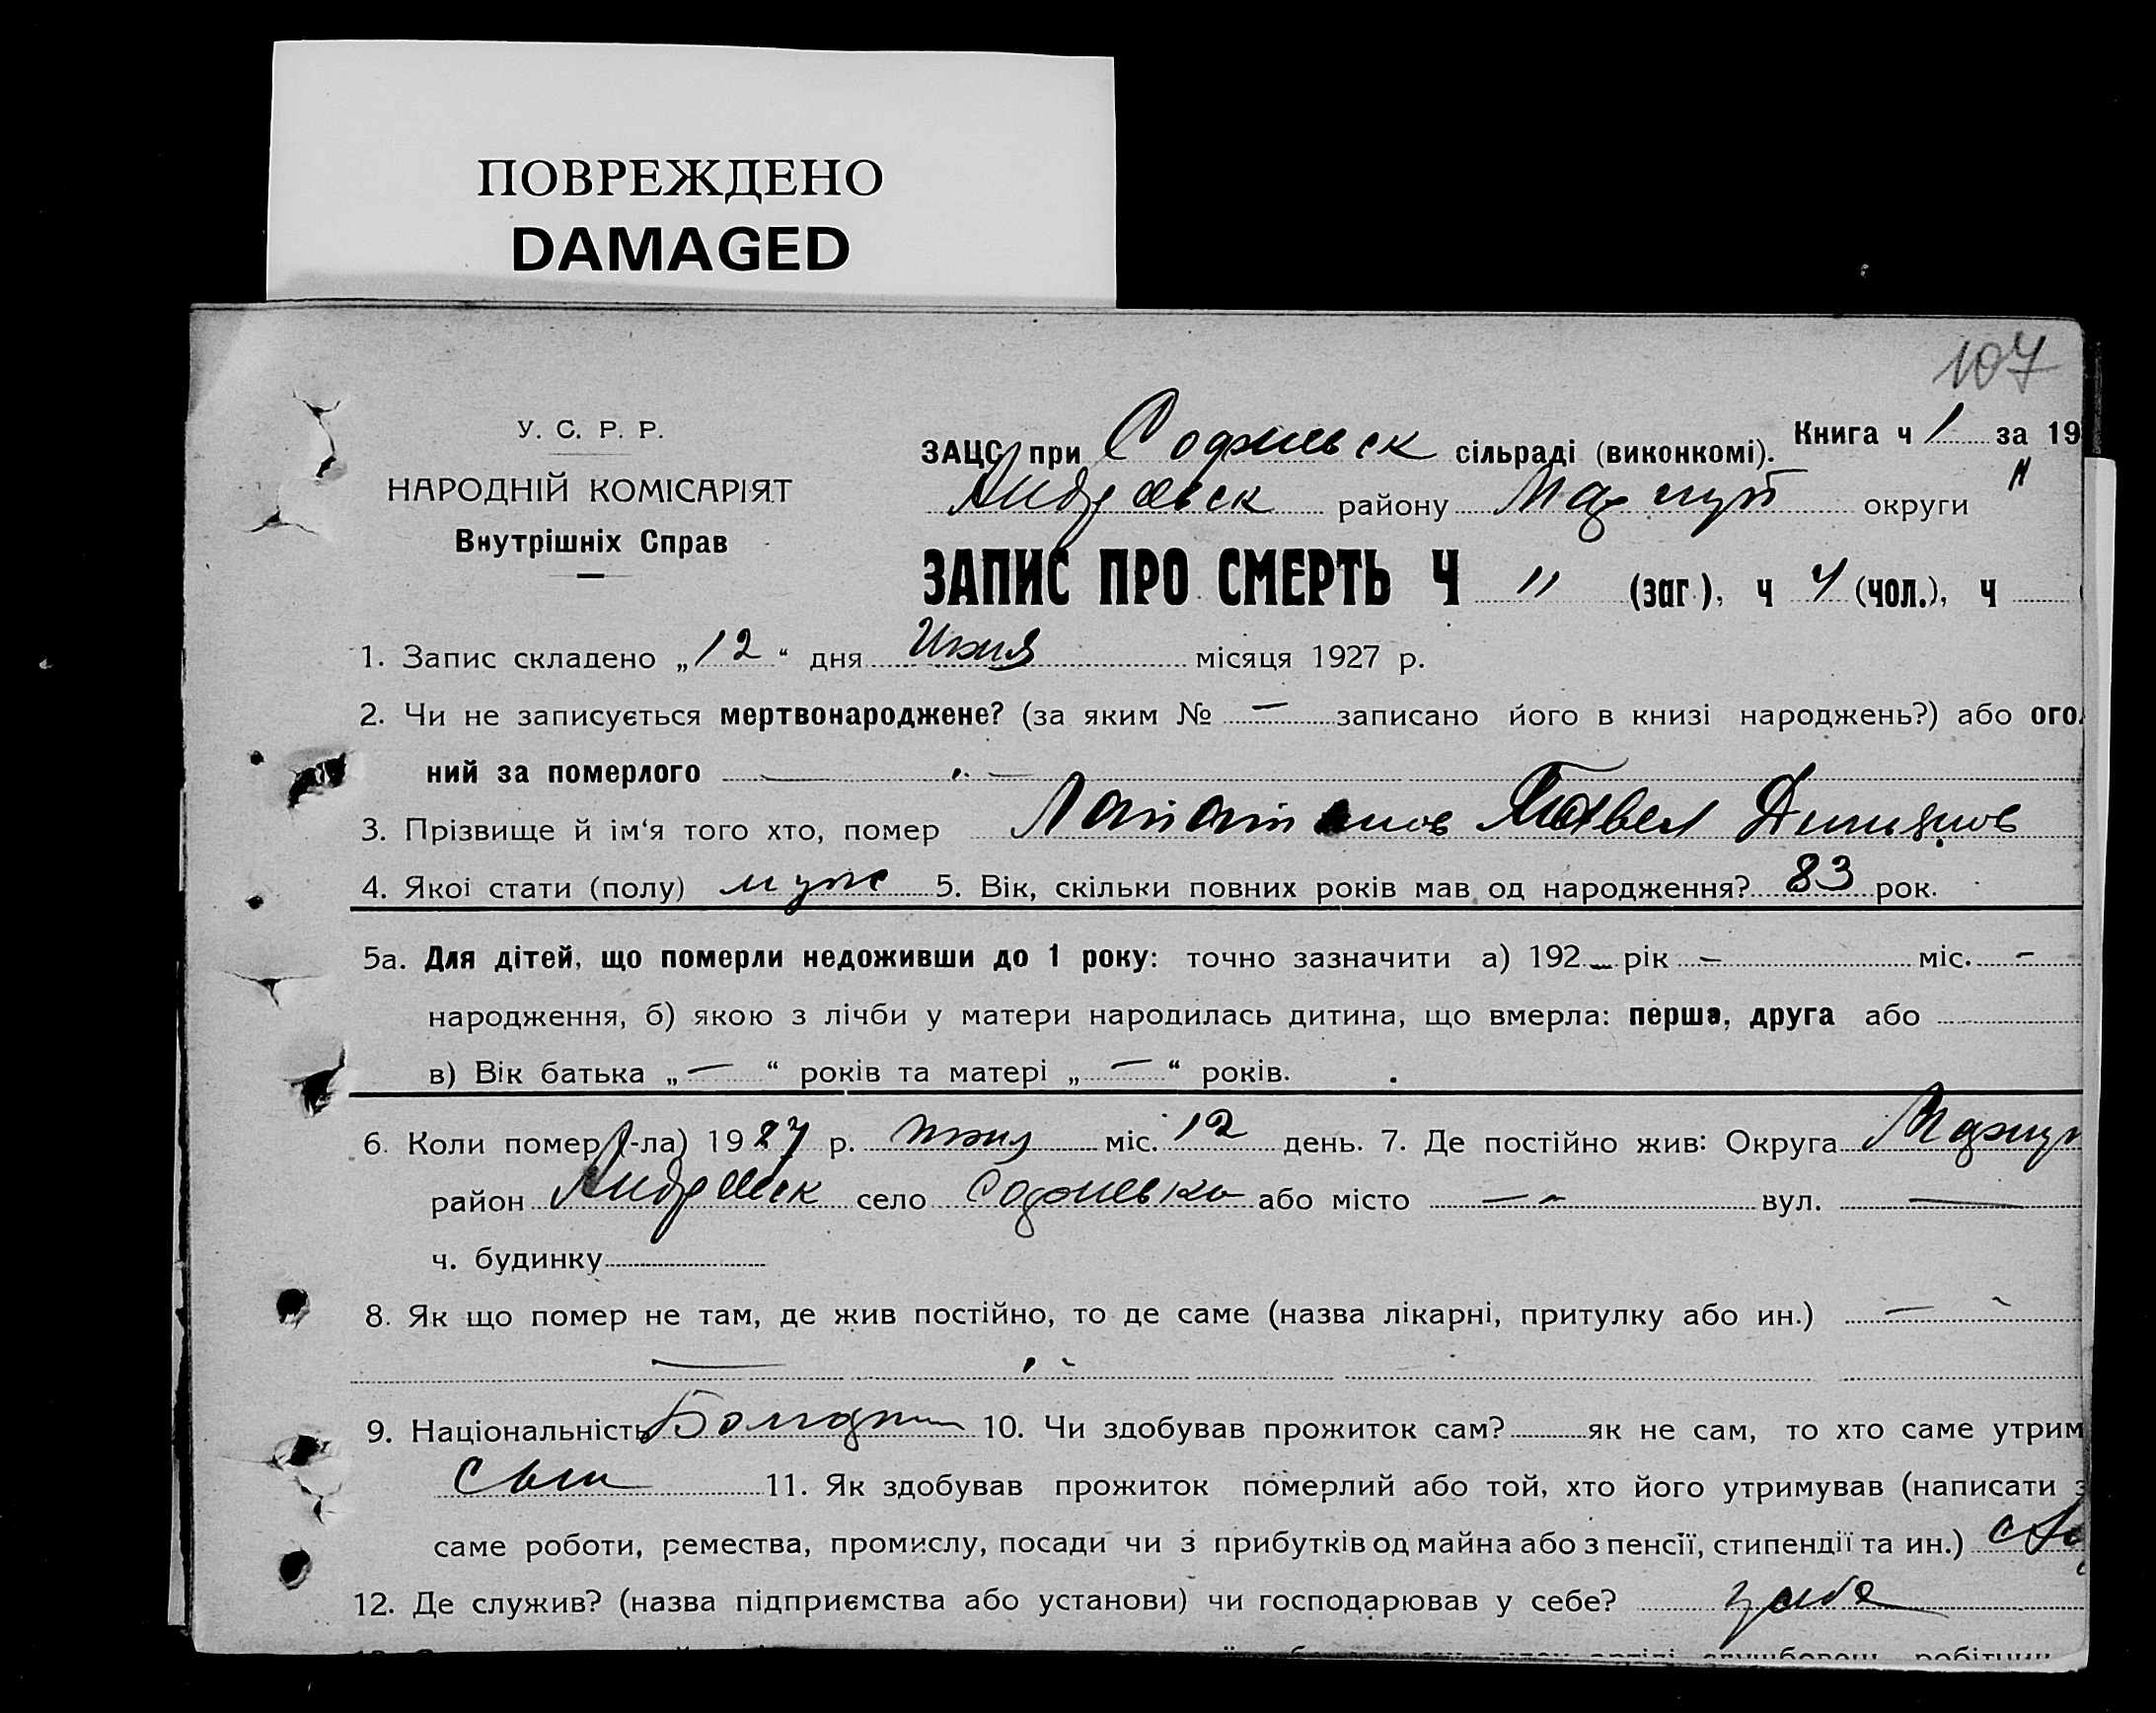 ПОВРЕЖДЕНО
DAMAGED
107
У. С. Р. Р.
НАРОДНІЙ КОМІСАРІЯТ
Внутрішніх Справ
ЗАЦС при Софиевск сільраді (виконкомі). Книга ч 1 за 19
Андреевск району Мариуп округи
ЗАПИС ПРО СМЕРТЬ Ч 11 (заг.), ч 4 (чол.), ч
1. Запис складено „12“ дня Июня місяця 1927 р.
2. Чи не записується мертвонароджене? (за яким № — записано його в книзі народжень?) або ого
ний за померлого —
3. Прізвище й ім‘я того хто, помер Павел
4. Якої стати (полу) муж 5. Вік, скільки повних років мав од народження? 83 рок.
5а. Для дітей, що померли недоживши до 1 року: точно зазначити а) 192 — рік — міс. —
народження, б) якою з лічби у матери народилась дитина, що вмерла: перша, друга або
в) Вік батька „—“ років та матері „—“ років.
6. Коли помер (-ла) 1927 р. июня міс. 12 день. 7. Де постійно жив: Округа Мариуп
район Андреевск село Софиевка або місто — вул. —
ч. будинку
8. Як що помер не там, де жив постійно, то де саме (назва лікарні, притулку або ин.) —
—
9. Національність Болгарин 10. Чи здобував прожиток сам? як не сам, то хто саме утрим
Сын 11. Як здобував прожиток померлий або той, хто його утримував (написати з
саме роботи, ремества, промислу, посади чи з прибутків од майна або з пенсії, стипендії та ин.)
12. Де служив? (назва підприємства або установи) чи господарював у себе? у себя